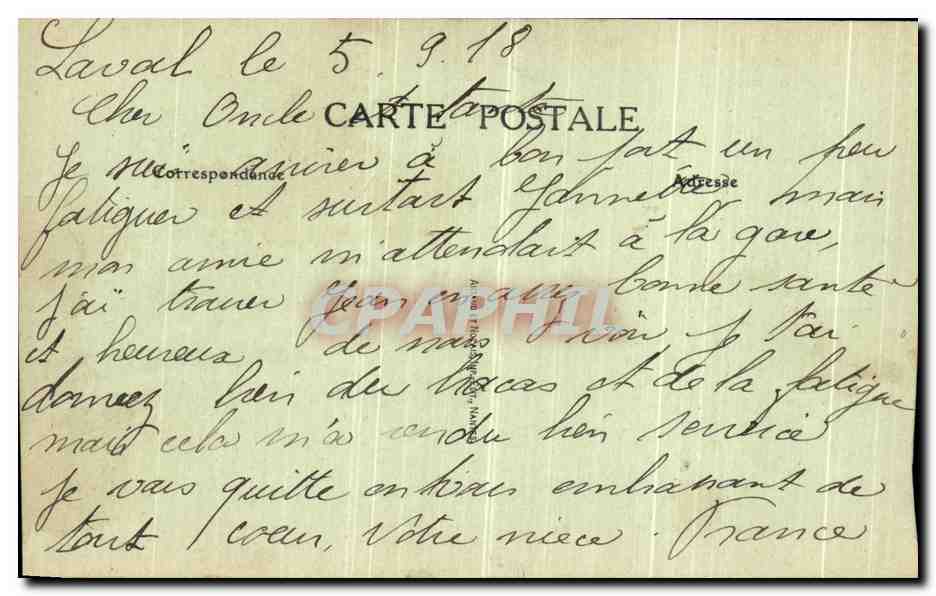 Laval le 5.9.18
Cher Oncle et tante
CARTE POSTALE
Correspondance
Adresse
Je suis arriver à bon port un peu
fatiguer et surtout mais
mon amie m'attendait à la gare,
j'ai trouver Jean en assez bonne santé
et heureux de nous voir je t'ai
donnez bien du tracas et de la fatigue
mais cela m'a rendu bien service
Je vous quitte en vous embrassant de
tout coeur, Votre niece. France
CPAPHIL